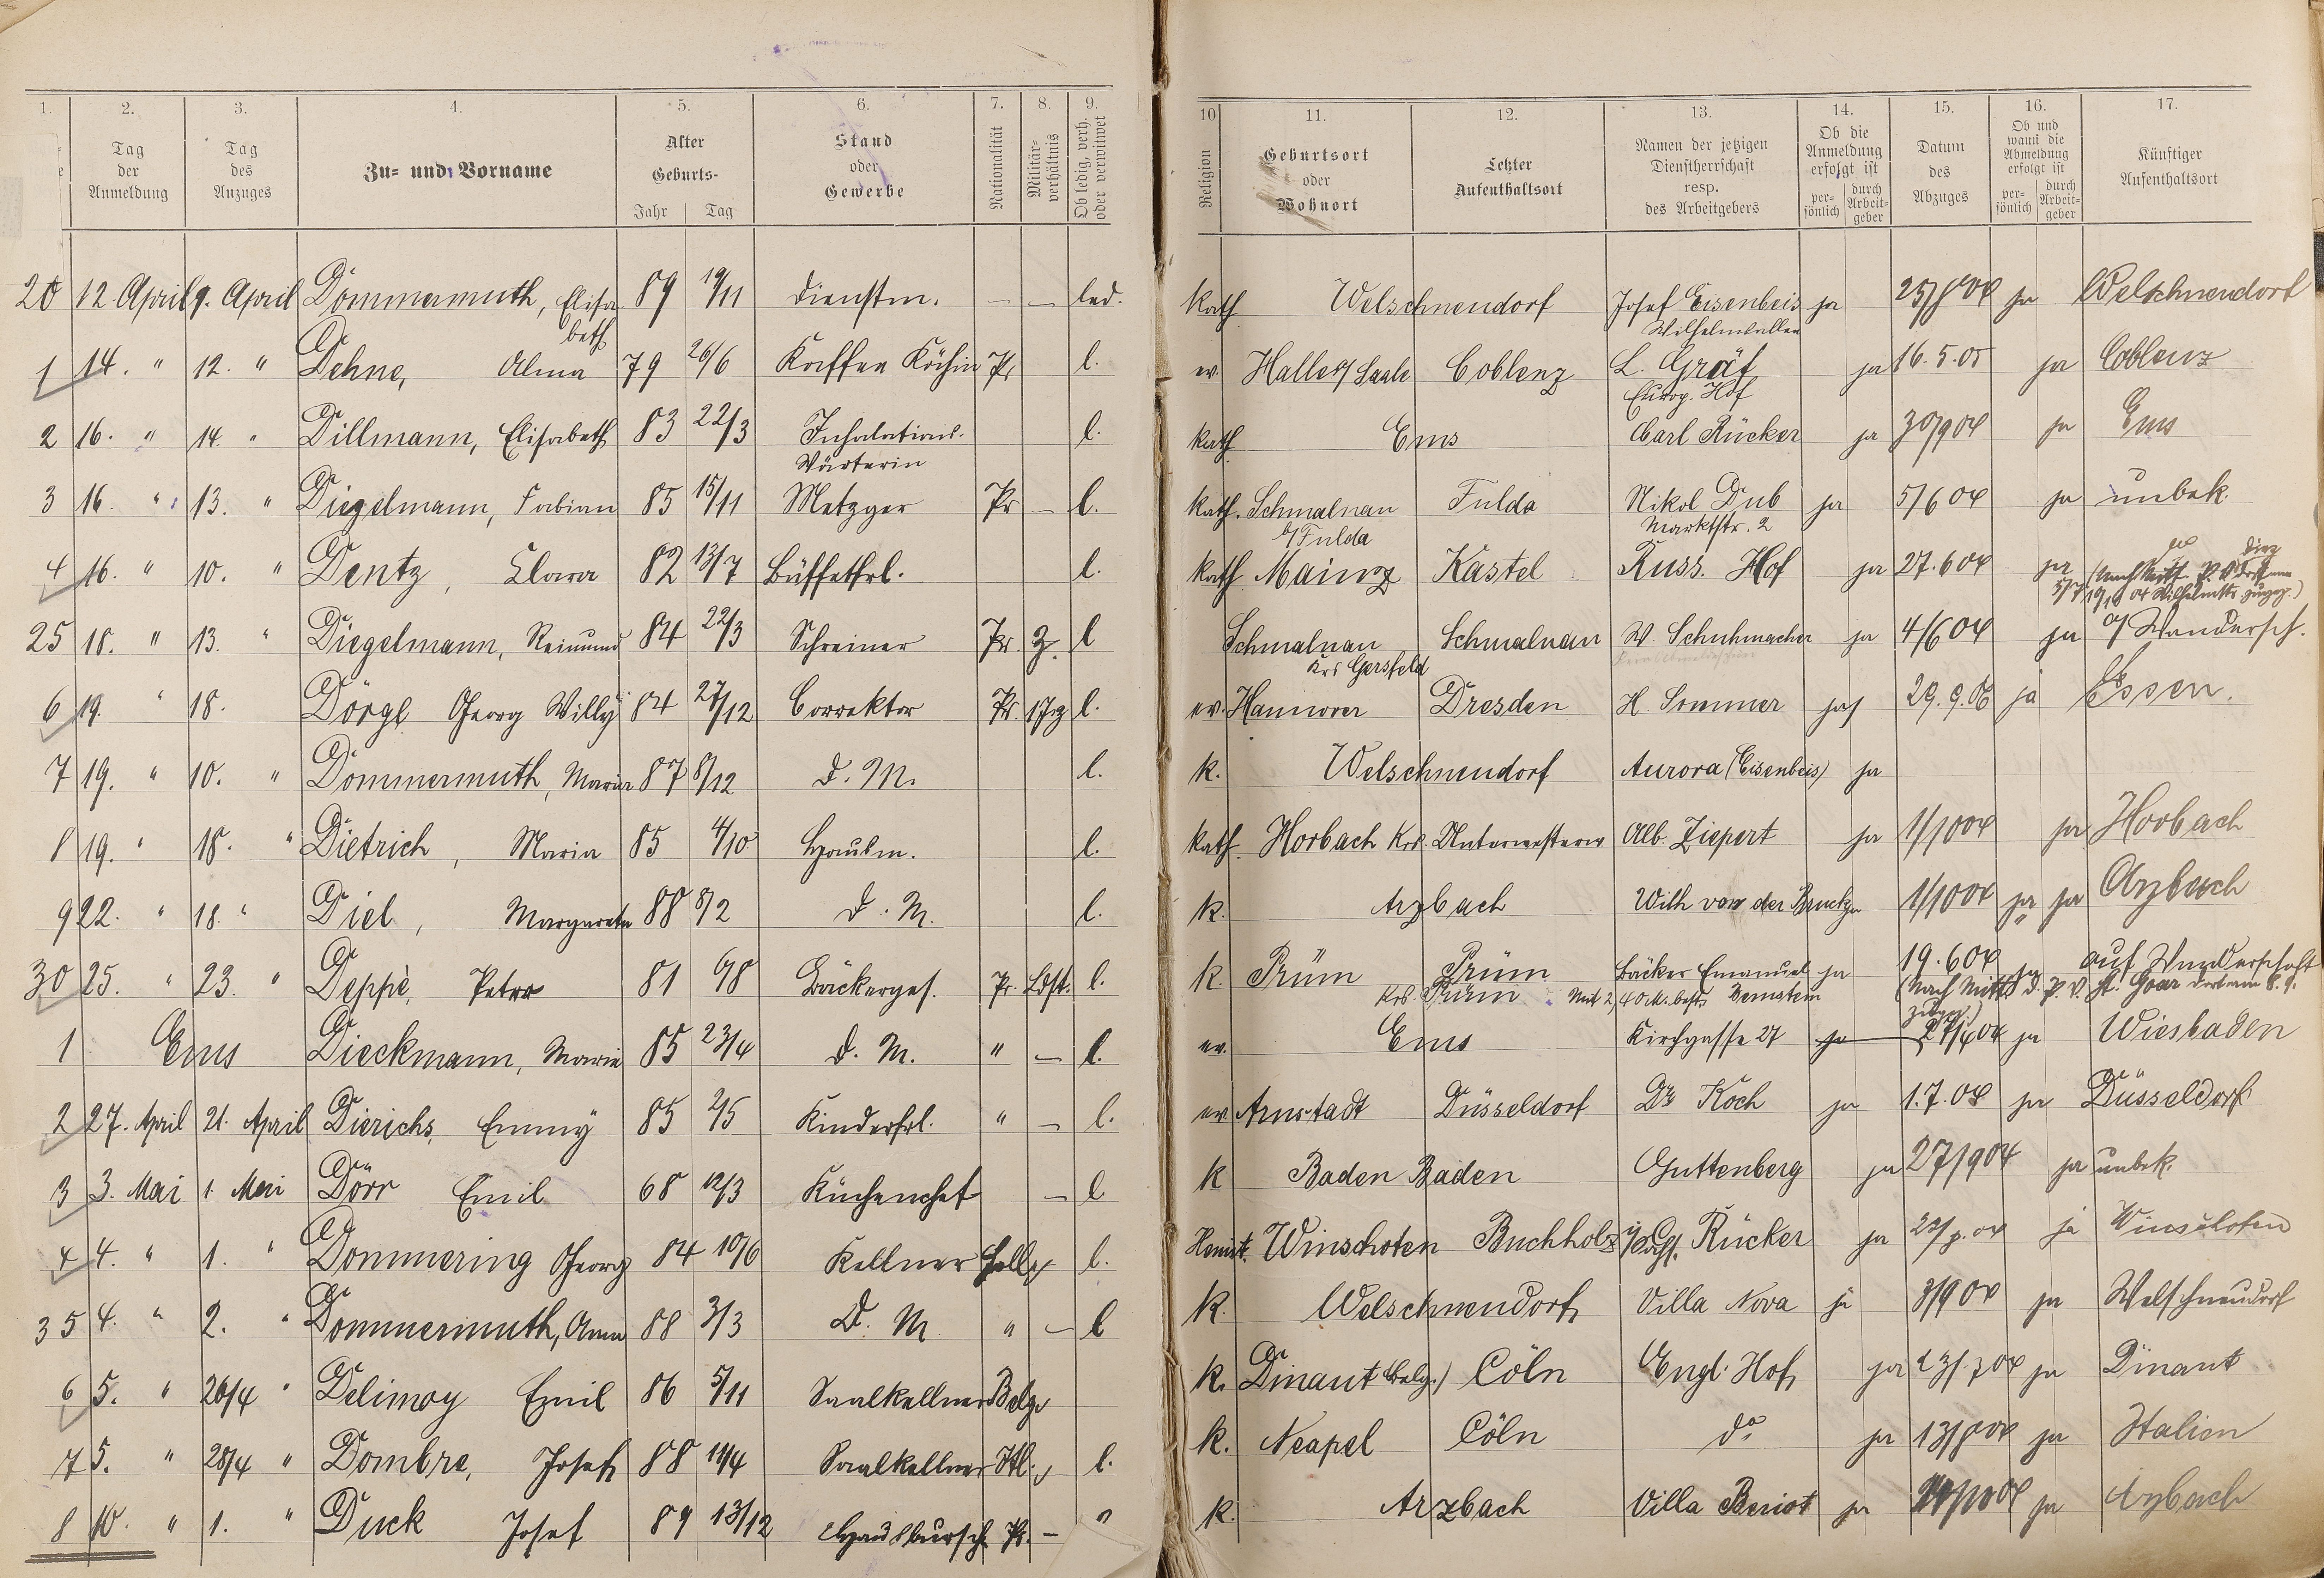 1. 2. 3. 4. 5. 6. 7. 8. 9. 10 11. 12. 13. 14. 15. 16. 17.
Tag der Anmeldung
Tag des Anzuges
Zu- und Vorname
Alter Geburts- Jahr Tag
Stand oder Gewerbe
Nationalität
Militär-verhältnis
Ob ledig, verh. oder verwitwet
Religion
Geburtsort oder Wohnort
Letzter Aufenthaltsort
Namen der jetzigen Dienstherrschaft resp. des Arbeitgebers
Ob die Anmeldung erfolgt ist per-sönlich durch Arbeit-geber
Datum des Abzuges
Ob und wann die Abmeldung erfolgt ist per-sönlich durch Arbeit-geber
Künftiger Aufenthaltsort
20 12. April 9. April Dommermuth, Elisa 89 19/11 Dienstm. — — led. Kath Welschnendorf Josef Eisenbeis ja 25/8 04 ja Welschnendorf
beth
1 14. " 12. " Dehne, Alma 79 26/6 Kaffee Köchin Pr l. ev. Halle a/ Saale Coblenz L. Gräf ja 16.5.05 ja Coblenz
Europ. Hof
2 16. " 14. " Dillmann, Elisabeth 83 22/3 Inhalations- l. Kath Ems Carl Rücker ja 30/9 04 ja Ems
Wärterin
3 16. " 13. " Diegelmann, Fabian 85 15/11 Metzger Pr — l. Kath. Schmalnau Fulda Nikol Dub ja 5/6 04 ja unbek.
b/Fulda Marktstr. 2
4 16. " 10. " Dentz, Clara 82 13/7 Büffetfrl. l. Kath Mainz Kastel Russ. Hof ja 27.6 04 ja
25 18. " 13. " Diegelmann, Reimund 84 22/3 Schreiner Pr. 3. l Schmalnau Schmalnau W. Schuhmacher ja 4/6 04 ja a/ Wandersch.
Krs Gersfeld
6 19. " 18. Dörge Georg Willÿ 84 27/12 Correktor Pr. l. ev. Hannover Dresden H. Sommer ja 29.9.06 ja Essen.
7 19. " 10. " Dommermuth, Maria 87 8/12 D. M. l. k. Welschnendorf Aurora (Eisenbeis) ja
8 19. " 18. " Dietrich, Maria 85 4/10 Hausm. l. Kath. Horbach Krs. Unterwesterw Alb. Ziepert ja 1/10 04 ja Horbach
9 22. " 18. " Diel, Margareta 88 8/2 D. M. l. k. Arzbach Wilh von der Bruck ja 1/10 04 ja ja Arzbach
30 25. " 23. " Deppé, Peter 81 6/8 Bäckerges. Pr. Ldst. l. k. Prüm Prüm Bäcker Emanuel ja 19.6 04 ja auf Wanderschaft
Krs. Prüm Bernstein
1 Ems Dieckmann, Marie 85 23/4 D. M. " — l. ev. Ems Kirchgasse 27 ja 27/4 04 ja Wiesbaden
2 27. April 21. April Dierichs, Emmÿ 85 2/5 Kinderfrl. " — l. ev Arnstadt Düsseldorf Dr Koch ja 1.7.04 ja Düsseldorf
3 3. Mai 1. Mai Dörr Emil 68 12/3 Küchenchef — l k Baden Baden Guttenberg ja 27/9 04 ja unbek.
4 4. " 1. " Dommering Georg 84 10/6 Kellner l. Winschoten Buchholz Rücker ja ja Winschoten
35 4. " 2. " Dommermuth, Anna 88 3/3 D. M. " — l k. Welschnendorf Villa Nova ja 3/9 04 ja Welschneudorf
6 5. " 26/4 " Delimoy Emil 86 5/11 Saalkellner Belg. k. Dinant (Belg.) Cöln Engl. Hof ja ja Dinant
7 5. " 28/4 " Dombre, Josef 88 14/4 Saalkellner Itl. l. k. Neapel Cöln do ja 13/8 04 ja Italien
8 10. " 1. " Duck Josef 89 13/12 Hausbursch. Pr. — " k. Arzbach Villa Beriot ja ja Arzbach